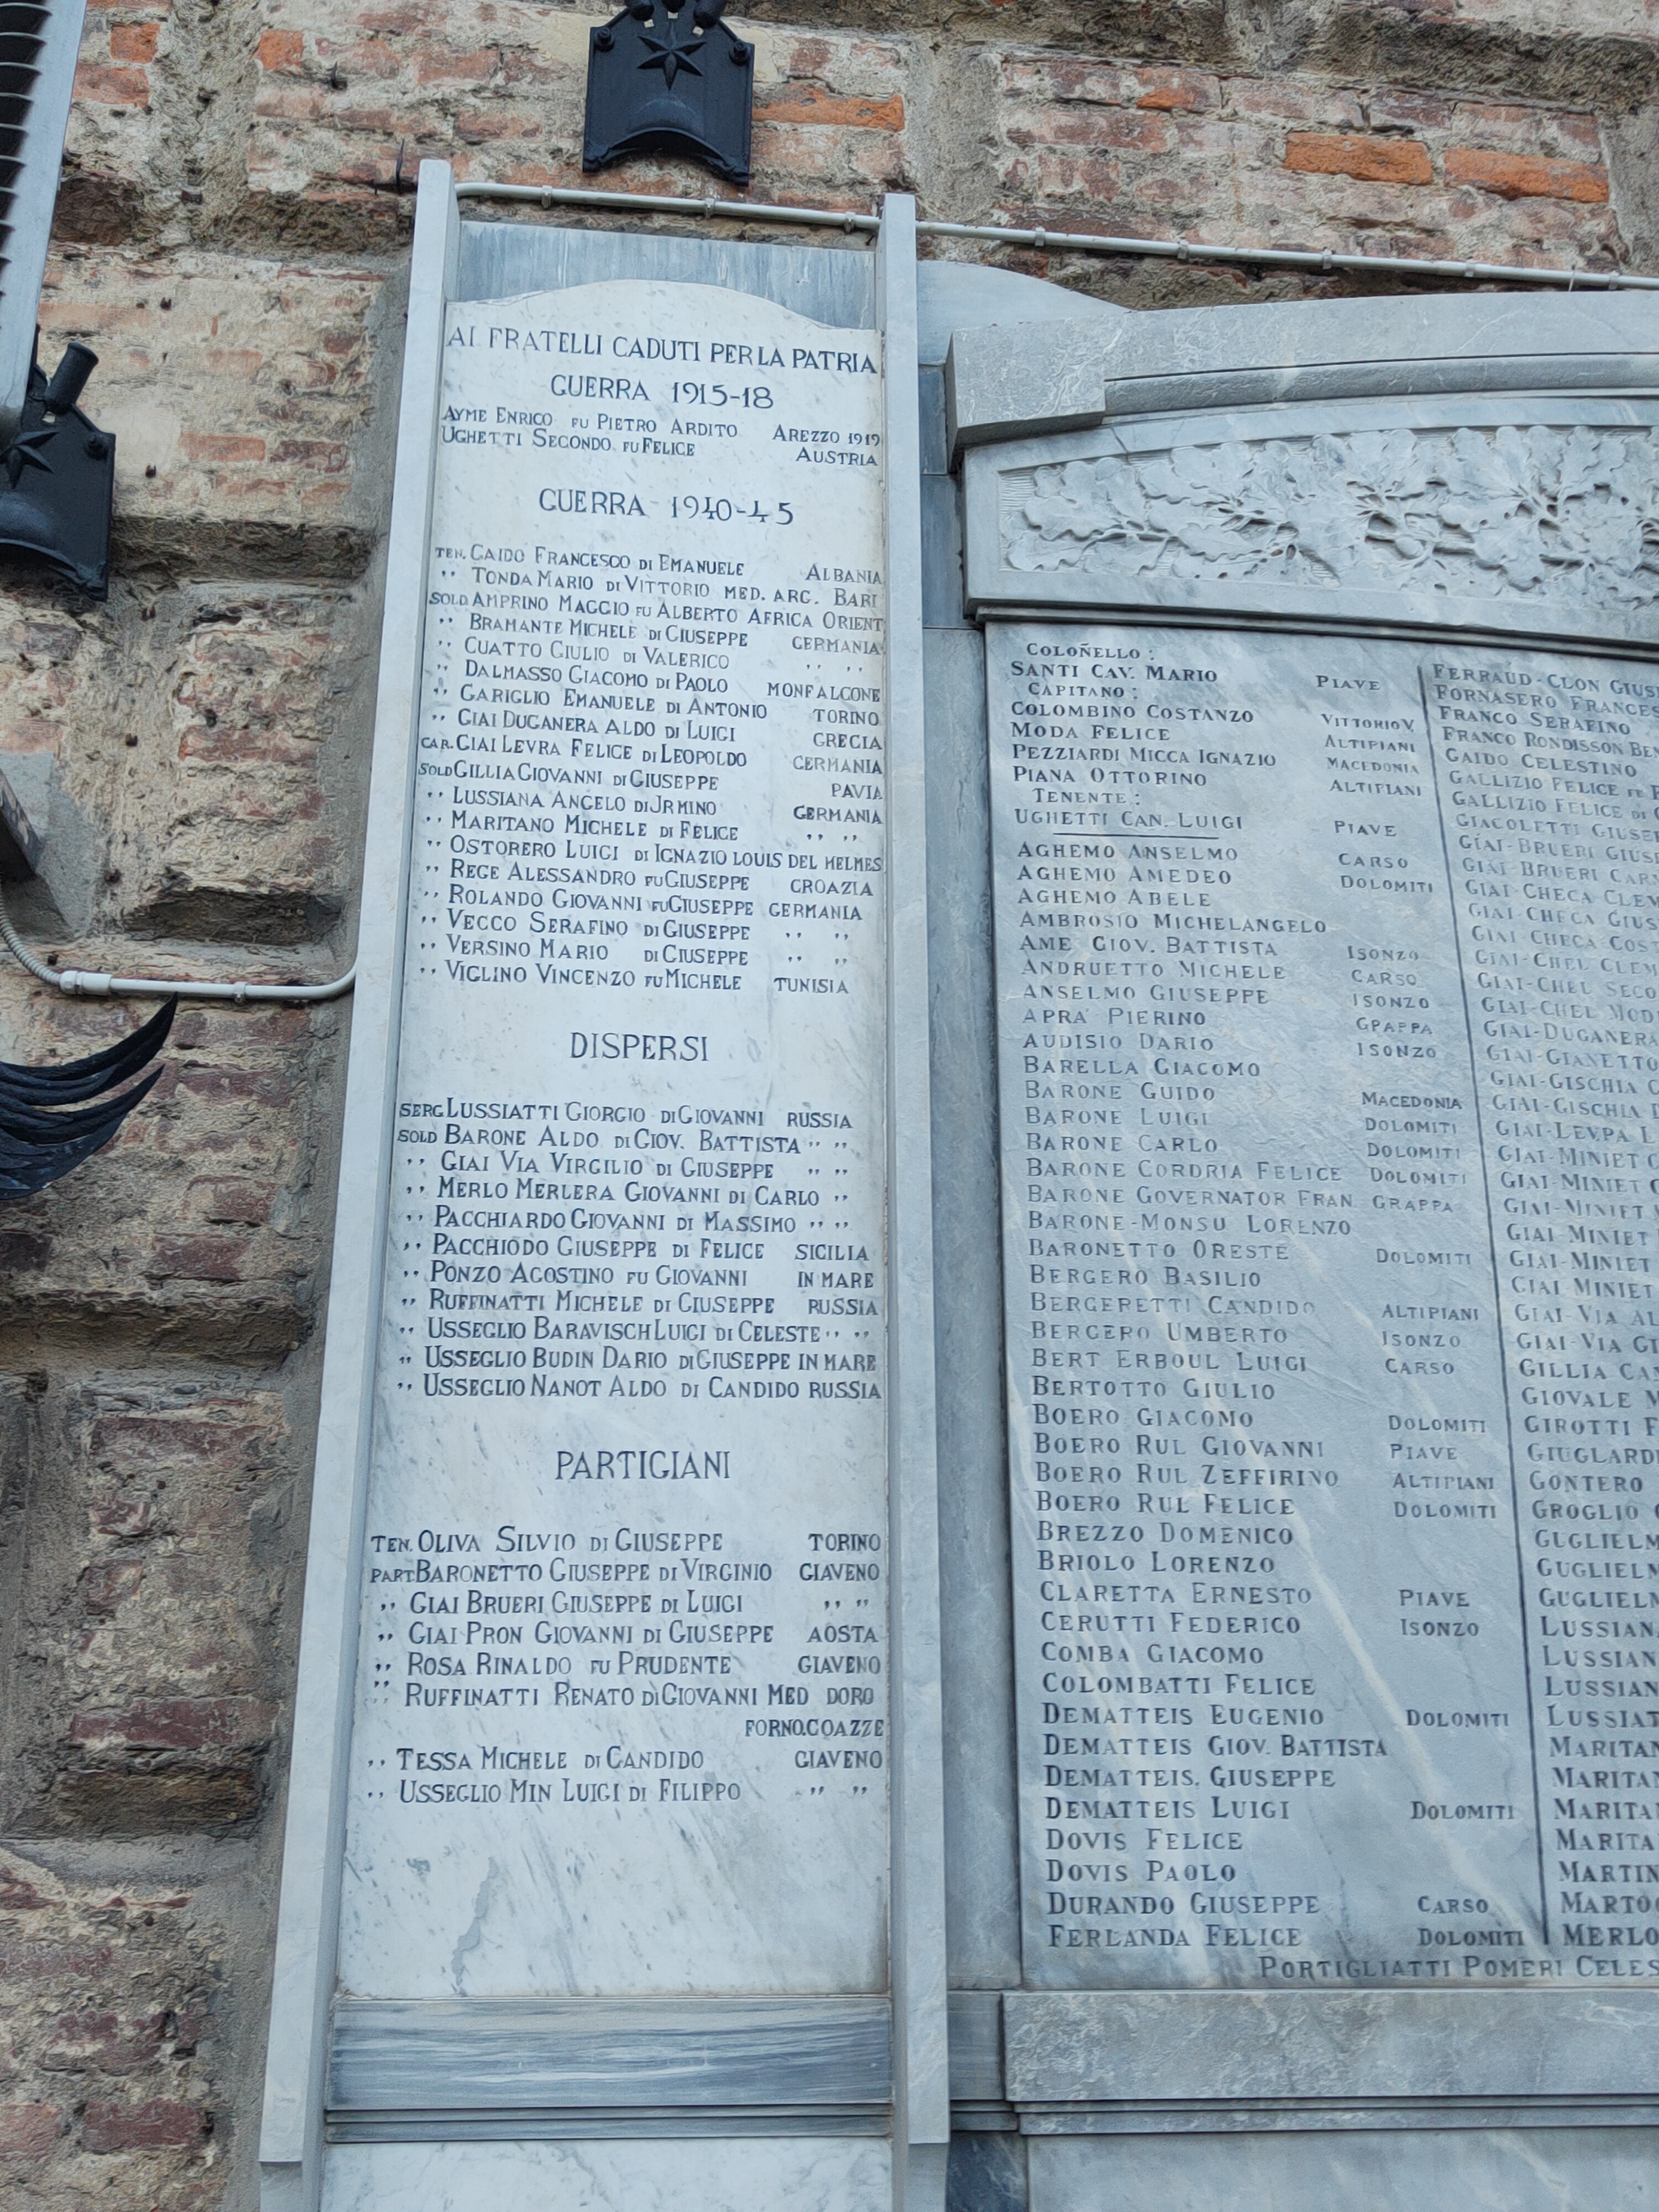 AI FRATELLI CADUTI PER LA PATRIA
GUERRA 1915-18
AYME ENRICO FU PIETRO ARDITO AREZZO 1919
UGHETTI SECONDO FU FELICE AUSTRIA
GUERRA 1940-45
TEN. GAIDO FRANCESCO DI EMANUELE ALBANIA
" TONDA MARIO DI VITTORIO MED. ARG. BARI
SOLD AMPRINO MAGGIO FU ALBERTO AFRICA ORIENT
" BRAMANTE MICHELE DI GIUSEPPE GERMANIA
" CUATTO GIULIO DI VALERICO " "
" DALMASSO GIACOMO DI PAOLO MONFALCONE
" GARIGLIO EMANUELE DI ANTONIO TORINO
" GIAI DUGANERA ALDO DI LUIGI GRECIA
CAR. GIAI LEVRA FELICE DI LEOPOLDO GERMANIA
SOLD GILLIA GIOVANNI DI GIUSEPPE PAVIA
" LUSSIANA ANGELO DI JRMINO GERMANIA
" MARITANO MICHELE DI FELICE " "
" OSTORERO LUIGI DI IGNAZIO LOUIS DEL HELMES
" REGE ALESSANDRO FU GIUSEPPE CROAZIA
" ROLANDO GIOVANNI FU GIUSEPPE GERMANIA
" VECCO SERAFINO DI GIUSEPPE " "
" VERSINO MARIO DI GIUSEPPE " "
" VIGLINO VINCENZO FU MICHELE TUNISIA
DISPERSI
SERG LUSSIATTI GIORGIO DI GIOVANNI RUSSIA
SOLD BARONE ALDO DI GIOV. BATTISTA " "
" GIAI VIA VIRGILIO DI GIUSEPPE " "
" MERLO MERLERA GIOVANNI DI CARLO "
" PACCHIARDO GIOVANNI DI MASSIMO " "
" PACCHIODO GIUSEPPE DI FELICE SICILIA
" PONZO AGOSTINO FU GIOVANNI IN MARE
" RUFFINATTI MICHELE DI GIUSEPPE RUSSIA
" USSEGLIO BARAVISCH LUIGI DI CELESTE " "
" USSEGLIO BUDIN DARIO DI GIUSEPPE IN MARE
" USSEGLIO NANOT ALDO DI CANDIDO RUSSIA
PARTIGIANI
TEN. OLIVA SILVIO DI GIUSEPPE TORINO
PART. BARONETTO GIUSEPPE DI VIRGINIO GIAVENO
" GIAI BRUERI GIUSEPPE DI LUIGI " "
" GIAI PRON GIOVANNI DI GIUSEPPE AOSTA
" ROSA RINALDO FU PRUDENTE GIAVENO
" RUFFINATTI RENATO DI GIOVANNI MED DORO
FORNO.COAZZE
" TESSA MICHELE DI CANDIDO GIAVENO
" USSEGLIO MIN LUIGI DI FILIPPO " "
COLOÑELLO :
SANTI CAV. MARIO PIAVE
CAPITANO :
COLOMBINO COSTANZO VITTORIO V.
MODA FELICE ALTIPIANI
PEZZIARDI MICCA IGNAZIO MACEDONIA
PIANA OTTORINO ALTIPIANI
TENENTE :
UGHETTI CAN. LUIGI PIAVE
AGHEMO ANSELMO CARSO
AGHEMO AMEDEO DOLOMITI
AGHEMO ABELE
AMBROSIO MICHELANGELO
AME GIOV. BATTISTA ISONZO
ANDRUETTO MICHELE CARSO
ANSELMO GIUSEPPE ISONZO
APRA' PIERINO GRAPPA
AUDISIO DARIO ISONZO
BARELLA GIACOMO
BARONE GUIDO MACEDONIA
BARONE LUIGI DOLOMITI
BARONE CARLO DOLOMITI
BARONE CORDRIA FELICE DOLOMITI
BARONE GOVERNATOR FRAN. GRAPPA
BARONE-MONSU LORENZO
BARONETTO ORESTE DOLOMITI
BERGERO BASILIO
BERGERETTI CANDIDO ALTIPIANI
BERGERO UMBERTO ISONZO
BERT ERBOUL LUIGI CARSO
BERTOTTO GIULIO
BOERO GIACOMO DOLOMITI
BOERO RUL GIOVANNI PIAVE
BOERO RUL ZEFFIRINO ALTIPIANI
BOERO RUL FELICE DOLOMITI
BREZZO DOMENICO
BRIOLO LORENZO
CLARETTA ERNESTO PIAVE
CERUTTI FEDERICO ISONZO
COMBA GIACOMO
COLOMBATTI FELICE
DEMATTEIS EUGENIO DOLOMITI
DEMATTEIS GIOV. BATTISTA
DEMATTEIS. GIUSEPPE
DEMATTEIS LUIGI DOLOMITI
DOVIS FELICE
DOVIS PAOLO
DURANDO GIUSEPPE CARSO
FERLANDA FELICE DOLOMITI
FERRAUD-CLON GIUS
FORNASERO FRANCES
FRANCO SERAFINO
FRANCO RONDISSON BEN
GAIDO CELESTINO
GALLIZIO FELICE FU
GALLIZIO FELICE DI
GIACOLETTI GIUSE
GIAI-BRUERI GIUS
GIAI-BRUERI CAR
GIAI-CHECA CLEM
GIAI-CHECA GIUS
GIAI CHECA COST
GIAI-CHEL CLEM
GIAI-CHEL SECO
GIAI-CHEL MOD
GIAI-DUGANERA
GIAI-GIANETTO
GIAI-GISCHIA
GIAI-GISCHIA
GIAI-LEVRA L
GIAI-MINIET
GIAI-MINIET
GIAI-MINIET
GIAI MINIET
GIAI-MINIET
GIAI MINIET
GIAI-VIA AL
GIAI-VIA GI
GILLIA CA
GIOVALE M
GIROTTI F
GIUGLARD
GONTERO
GROGLIO
GUGLIELM
GUGLIELM
GUGLIELM
LUSSIAN
LUSSIAN
LUSSIAN
LUSSIAT
MARITAN
MARITAN
MARITA
MARITA
MARTIN
MARTO
MERLO
PORTIGLIATTI POMERI CELES